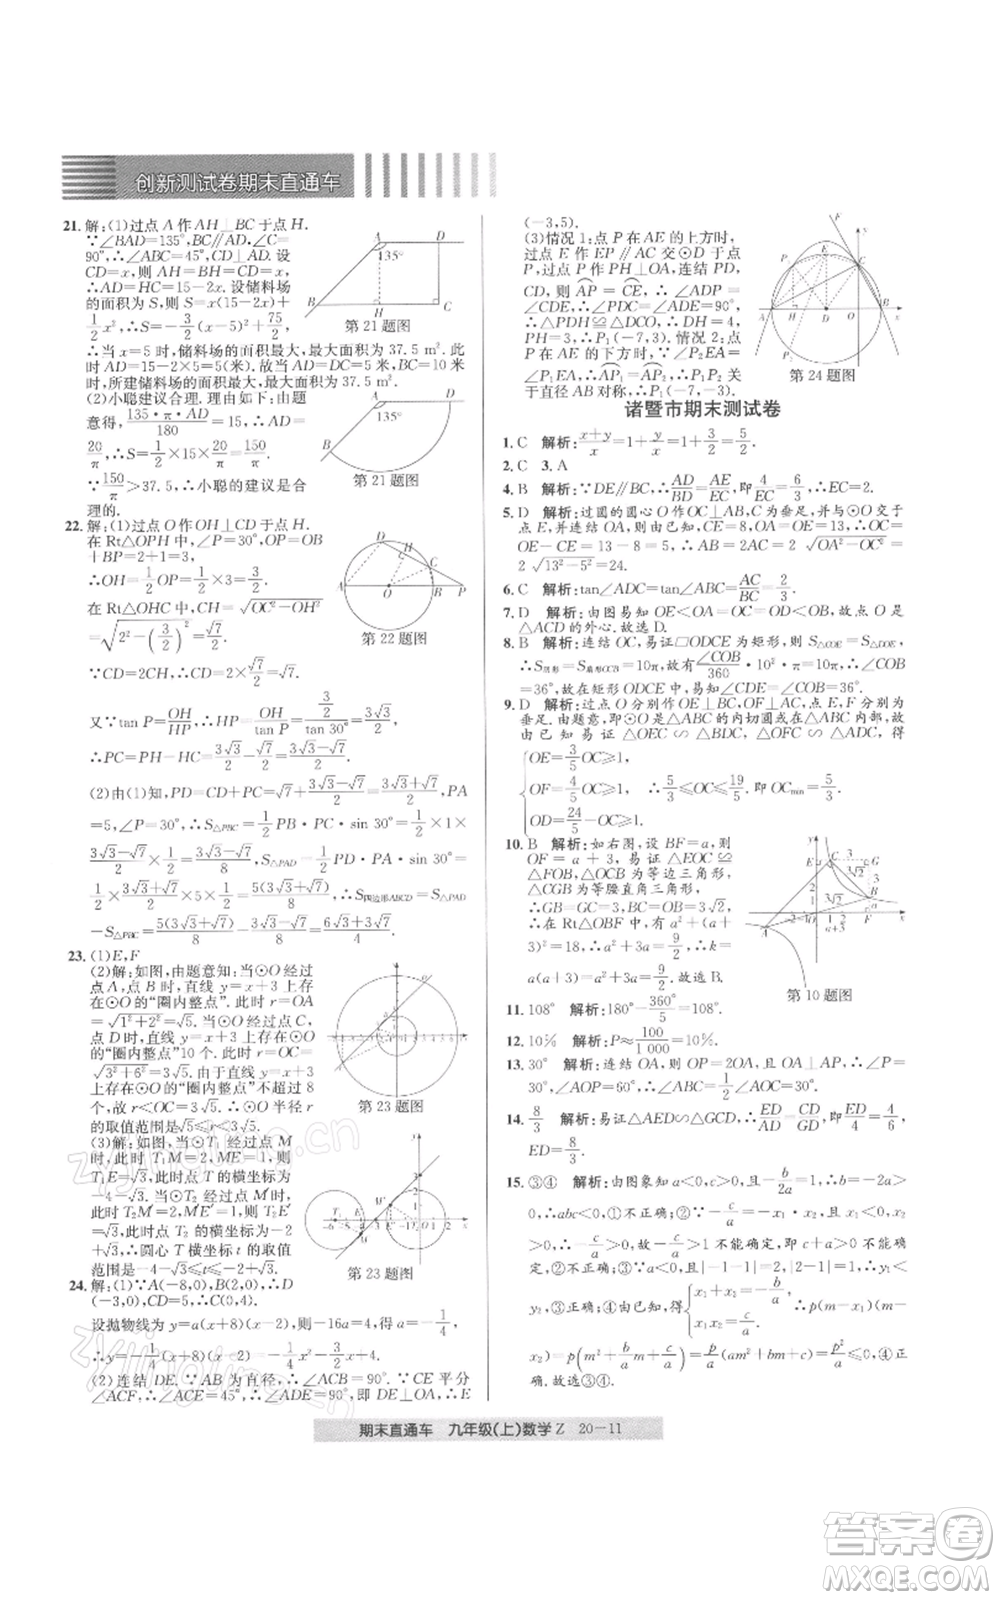 创新测试卷期末直通车
21. 解:(1)过点 A 作 AH⊥BC 于点 H.
∵∠BAD=135°,BC∥AD,∠C=
90°,∴∠ABC=45°,∠HAD=90°.设
CD=x,则 AH=HB=CD=x,
∴AD=HC=15-2x.设储料场
的面积为 S,则 S=1/2 x(x+15-2x)+
1/2 x²,∴S=-3/2
∴当 x=5 时,储料场的面积最大,最大面积为 37.5 m².
此时 AD=15-2x=5(米).故当 AD=5 米,BC=10 米
时,所建储料场的面积最大,最大面积为 37.5 m².
(2)小聪建议合理.理由如下:由题
意得,135·π·AD/180=15,∴AD=
20/π,∴S=1/2×15×20/π=150/π.
∵150/π>37.5,∴小聪的建议是合
理的.
第 21 题图
第 21 题图
22. 解:(1)过点 O 作 OH⊥CD 于点 H.
在 Rt△OPH 中,∵∠P=30°,OP=OB
+BP=2+1=3,
∴OH=1/2 OP=1/2×3=3/2.
在 Rt△OHC 中,∵HC=√(OC²-OH²)
=√(2²-(3/2)²)=√7/2.
第 22 题图
∵CD=2CH,∴CD=2×√7/2=√7.
又∵tan P=OH/HP,∴HP=OH/tan P=(3/2)/tan 30°=3√3/2.
∴PC=PH-CH=3√3/2-√7/2=(3√3-√7)/2.
(2)由(1)知,PD=CD+PC=√7+(3√3-√7)/2=(3√3+√7)/2,PA
=5,∠P=30°,∴S△PBC=1/2 PB·PC·sin 30°=1/2×1×
(3√3-√7)/2×1/2=(3√3-√7)/8,S△PAD=1/2 PD·PA·sin 30°=
1/2×(3√3+√7)/2×5×1/2=5(3√3+√7)/8.∴S四边形ABCD=S△PAD
-S△PBC=5(3√3+√7)/8-(3√3-√7)/8=(6√3+3√7)/4.
23. (1)E,F
(2)解:如图,由题意知:当⊙O 经过
点 A,点 A 在⊙O 上,直线 y=x+3 上
有⊙O 的“圈内整点”.此时 r=OA
=√(1²+2²)=√5.当⊙O 经过点 C,
点 D 时,直线 y=x+3 上,⊙O 的“圈
内整点”10 个.此时 r=OC=
√(3²+6²)=3√5.由于直线 y=x+3
上,⊙O 的“圈内整点”不超过 8
个,故 r<OC=3√5.∴⊙O 半径 r
的取值范围是√5≤r<3√5.
第 23 题图
(3)解:如图,当⊙T₁ 经过点 M
时,此时 T₁M=2,ME=1.则
T₁E=√3,当⊙T₂ 的横坐标为
-4-√3.当⊙T₂ 经过点 M′时,此
时 T₂M′=2,ME′=1.则 T₂E′
=√3,⊙T₂ 的横坐标为-2
+√3,∴圆心 T 的横坐标 t 的取值
范围是-4-√3≤t≤-2+√3.
第 23 题图
24. 解:(1)∵A(-8,0),B(2,0),∴D
(-3,0),CD=5,∴C(0,4).
设抛物线为 y=a(x+8)(x-2),则-16a=4,∴a=-1/4
∴y=-1/4(x+8)(x-2)=-1/4x²-3/2x+4.
(2)连结 DE.∵AB 为直径,∴∠ACB=90°.∵CE 平分
∠ACF,∴∠ACE=45°,∴∠ADE=90°,即 DE⊥OA,∴E
(-3,5).
(3)情况 1:点 P 在 AE 的上方时,
过点 P 作 PH⊥OA,连结 PD,CD.
∵EP∥AC,∴∠PEA=∠CAE,
则 AP=CE,∴AP=CE,
∴∠PDC=∠ADE=90°,
∴△PDH≌△DCO,∴DH=4,
PH=3,∴P(-7,3).情况 2:点 P
在 AE 的下方时,∵∠P₂EA=
∠P₁EA=∠CAE,∴点 P₁ 与点 P₂
关于直径 AB 对称,∴P₁(-7,-3).
第 24 题图
诸暨市期末测试卷
1. C 解析:(x+y)/x=1+y/x=1+3/2=5/2.
2. C 3. A
4. B 解析:∵DE∥BC,∴AD/BD=AE/EC,即 4/6=3/EC,∴EC=2.
5. D 解析:过圆的圆心 O 作 OC⊥AB,C 为垂足,并与⊙O 交于
点 E,并连结 OA.由已知,CE=8,AO=OE=13,∴OC=
OE-CE=13-8=5,∴AB=2AC=2√(OA²-OC²)=
2√(13²-5²)=24.
6. C 解析:tan∠ADC=tan∠ABC=AC/BC=2/3.
7. D 解析:由图易知 OE<OA=OC=OD<OB,故点 O 是
△ACD 的外心.故选 D.
8. B 解析:连结 OC,易证▱ODCE 为矩形,则 S△COE=S△DOE,
∴S阴影=S扇形OCB=10π,故有∠COB/360·10²·π=10π,∴∠COB
=36°,故在矩形 ODCE 中,∠CDE=∠COB=36°.故选 B.
9. D 解析:过点 O 分别作 OE⊥BC,OF⊥AC,点 E,F 分别为
垂足.由题意,即⊙O 是△ABC 的内切圆或在△ABC 内部,故
由已知易证△OEC∽△BDC,△OFC∽△ADC,得
OE=3/5 OC≥1,
OF=4/5 OC≥1, ∴5/3≤OC≤19/5.即 OCmin=5/3.
OD=24/5-OC≥1,
10. B 解析:如右图,设 BF=a,则
OF=a+3,易证△EOC≌
△CGB 为等腰直角三角形,
∴GB=GC=3,BC=OB=3√2,
∴在 Rt△OBF 中,有 a²+(a+
3)²=18,∴a²+3a=9/2,∴k=
a(a+3)=a²+3a=9/2.故选 B.
第 10 题图
11. 108° 解析:180°-360°/5=108°.
12. 10% 解析:P≈100/1 000=10%.
13. 30° 解析:连结 OA,则 OP=2OA,又∵OA⊥AP,∴∠P=
30°,∴∠AOP=60°,∴∠ABC=1/2∠AOC=30°.
14. 8/3 解析:易证△AED∽△GCD,∴ED/AD=CD/GD,即 ED/4=4/6,
∴ED=8/3.
15. ③④ 解析:由图象知 a<0,c>0,-b/2a=1,∴b=-2a>0,
∴abc<0,①不能证明;∵b/a=-2,∴-
>0,∴②不能证明,即∵|-1-1|=2,|-2-1|=3,∴y₁<
y₂,∴③正确;
x₁+x₂=-b/a,
x₁x₂=c/a,
∴p(m-x₁)(m-
x₂)=p(m²+b/a m+c/a)=p/a(am²+bm+c)≤0,∴④正确.
故选③④.
期末直通车 九年级(上)数学 Z 20-11
答案圈